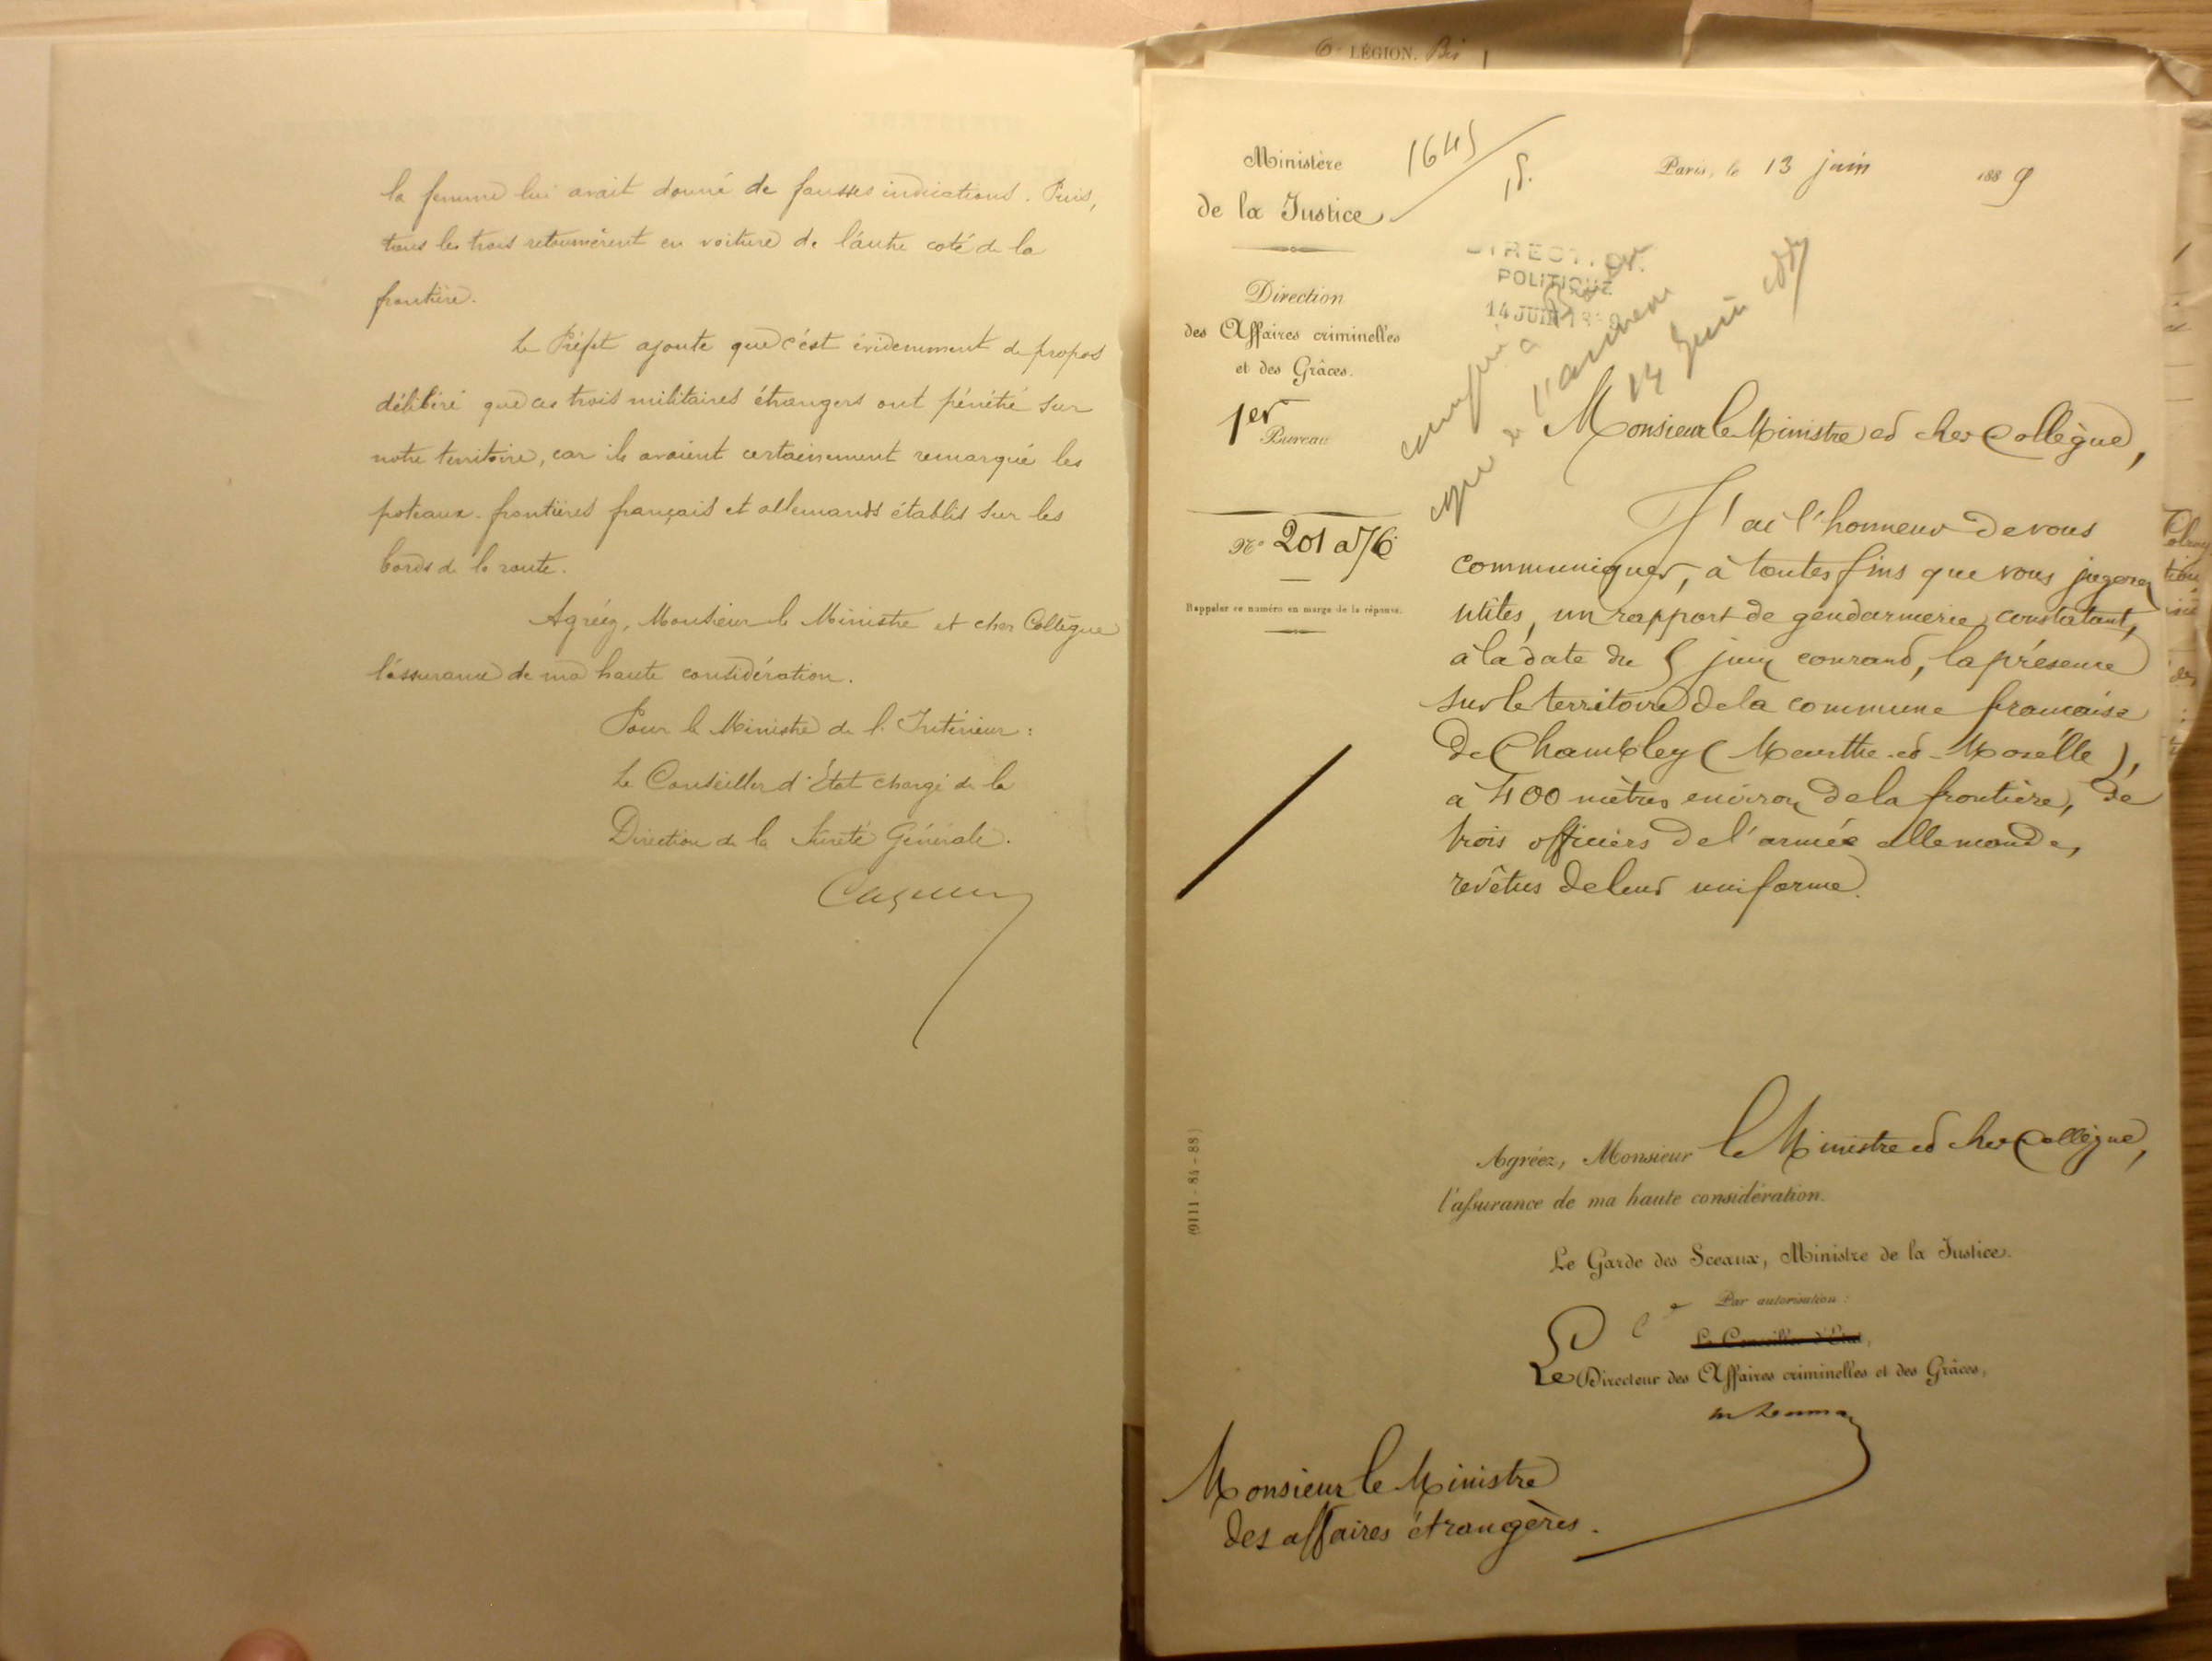 la femme lui avait donné de fausses indications. Puis,
tous les trois retournèrent en voiture de l'autre coté de la
frontière.
Le Préfet ajoute que c'est évidemment de propos
délibéré que ces trois militaires étrangers ont pénétré sur
notre territoire, car ils avaient certainement remarqué les
poteaux-frontières français et allemands établis sur les
bords de la route.
Agréez, Monsieur le Ministre et cher Collègue
l'assurance de ma haute considération.
Pour le Ministre de l'Intérieur:
Le Conseiller d'Etat chargé de la
Direction de la Sureté Générale.
6e LÉGION. Bis
Ministère
de la Justice
1645
Paris, le 13 juin 1889
Direction
des Affaires criminelles
et des Grâces.
1er Bureau
No 201 a 76
Rappeler ce numéro en marge de la réponse.
DIRECTION
POLITIQUE
14 JUIN
14 Juin
Monsieur le Ministre et cher Collègue,
J'ai l'honneur de vous
communiquer, à toutes fins que vous jugerez
utiles, un rapport de gendarmerie constatant,
à la date du 5 juin courant, la présence
sur le territoire de la commune française
de Chambley (Meurthe-et-Moselle),
à 400 mètres environ de la frontière, de
trois officiers de l'armée allemande,
revêtus de leur uniforme.
Agréez, Monsieur le Ministre et cher Collègue,
l'assurance de ma haute considération.
Le Garde des Sceaux, Ministre de la Justice.
Par autorisation :
Le Conseiller d'Etat,
Le Directeur des Affaires criminelles et des Grâces,
(9111-84-88)
Monsieur le Ministre
des affaires étrangères.